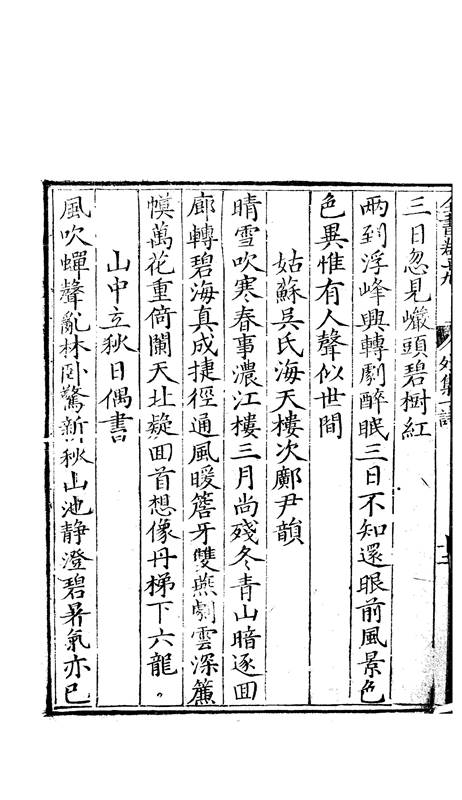 三日忽見巗頭碧樹紅
兩到浮峰興轉劇醉眠三日不知還眼前風景色
色異惟有人聲似世間
姑蘇吳氏海天樓次鄺尹韻
晴雪吹寒春事濃江樓三月尚殘冬青山暗逐囬
廊轉碧海真成捷徑通風暖簷牙雙燕劇雲深簾
幙萬花重倚闌天北疑囬首想像丹梯下六龍。
山中立秋日偶書
風吹蟬聲亂林卧驚新秋山池静澄碧暑氣亦已